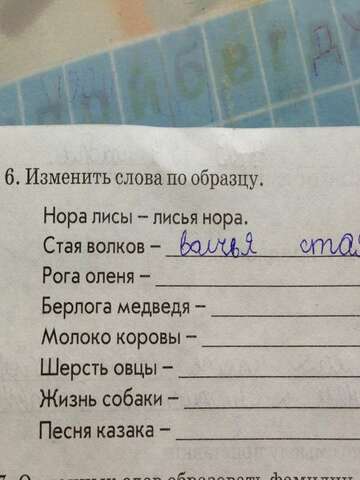 6. Изменить слова по образцу.
Нора лисы – лисья нора.
Стая волков – волчья ста
Рога оленя –
Берлога медведя –
Молоко коровы –
Шерсть овцы –
Жизнь собаки –
Песня казака –